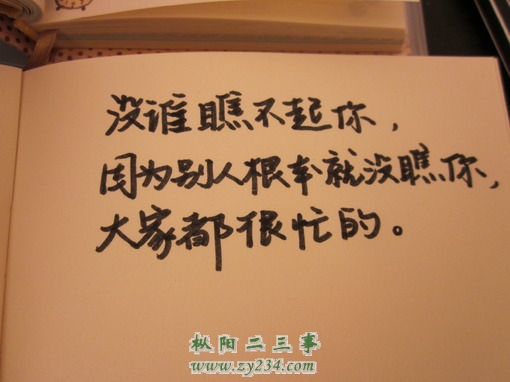 没谁瞧不起你，
因为别人根本就没瞧你，
大家都很忙的。
枞阳二三事
www.zy234.com